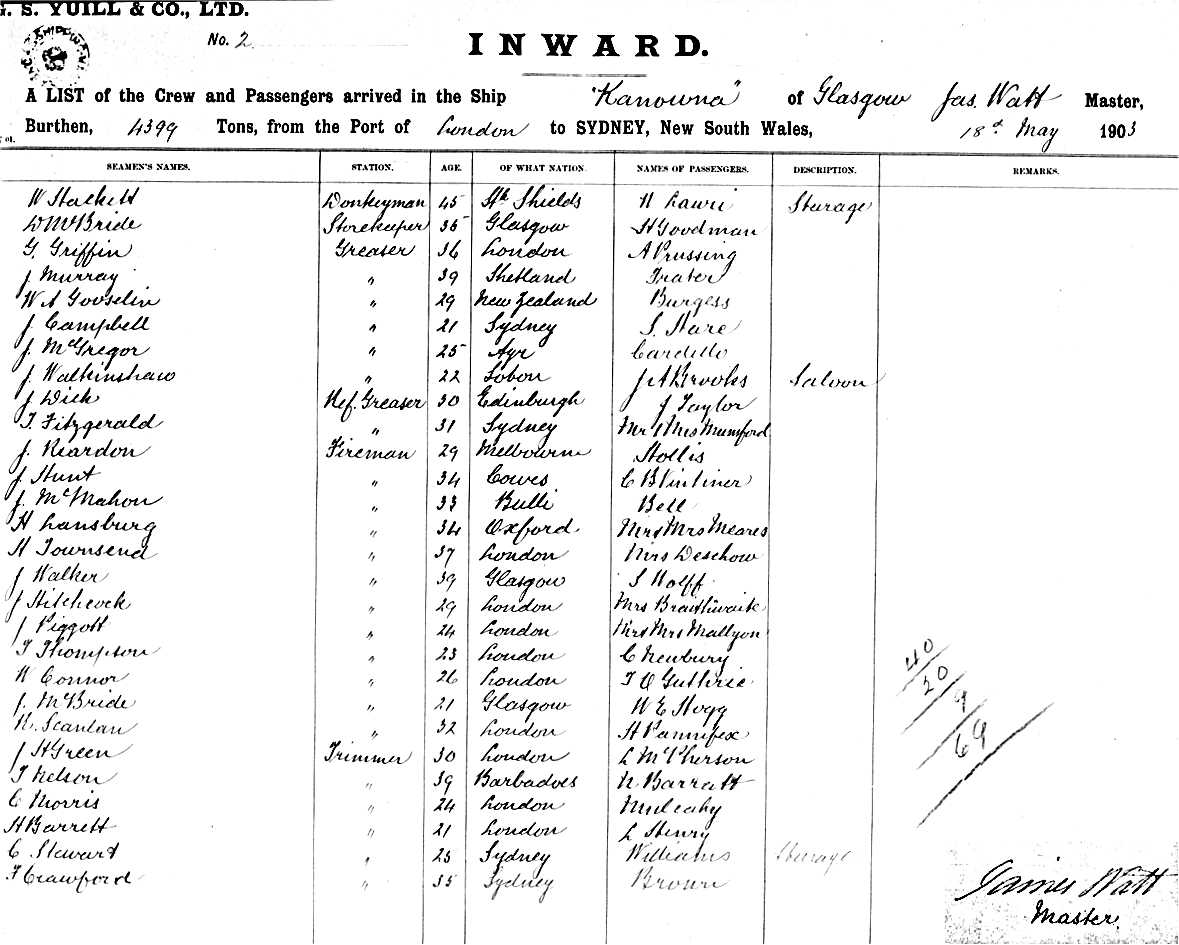 G. S. YUILL & CO., LTD.
No. 2
INWARD.
A LIST of the Crew and Passengers arrived in the Ship "Kanowna" of Glasgow Jas. Watt Master,
Burthen, 4399 Tons, from the Port of London to SYDNEY, New South Wales, 18th May 1903
SEAMEN'S NAMES. STATION. AGE. OF WHAT NATION. NAMES OF PASSENGERS. DESCRIPTION. REMARKS.
W Stackett Donkeyman 45 Sth Shields Sturage
D McBride Storekeeper 35 Glasgow H Goodman
G. Griffin Greaser 36 London A Prussing
J Murray " 39 Shetland Frater
W A Gooselin " 29 New Zealand Burgess
J. Campbell " 21 Sydney S. Hare
J. McGregor " 25 Ayr Cardillo
J. Walkinshaw " 22 J A Brooks Saloon
J Dick Ref. Greaser 30 Edinburgh J Taylor
T. Fitzgerald " 31 Sydney Mr & Mrs Mumford
J. Reardon Fireman 29 Melbourne Hollis
J Hunt " 34 Cowes C B
J. McMahon " 33 Bulli Bell
H Lansburg " 34 Oxford Mr & Mrs Meares
H Townsend " 37 London Mrs Deschow
J Walker " 39 Glasgow S Wolff
J Hitchcock " 29 London Mrs Braithwaite
J Piggott " 24 London Mr & Mrs Mallyon
T Thompson " 23 London C Newbury
W Connor " 26 London T O Guthrie
J. McBride " 21 Glasgow W E Hogg
R. Scanlan " 32 London H Pannifex
J H Green Trimmer 30 London L McPherson
T Nelson " 39 Barbadoes N Barratt
C Morris " 24 London Mulcahy
H Barrett " 21 London L Henry
C Stewart " 25 Sydney Williams Sturage
F Crawford " 35 Sydney Brown
40
20
9
69
James Watt
Master.